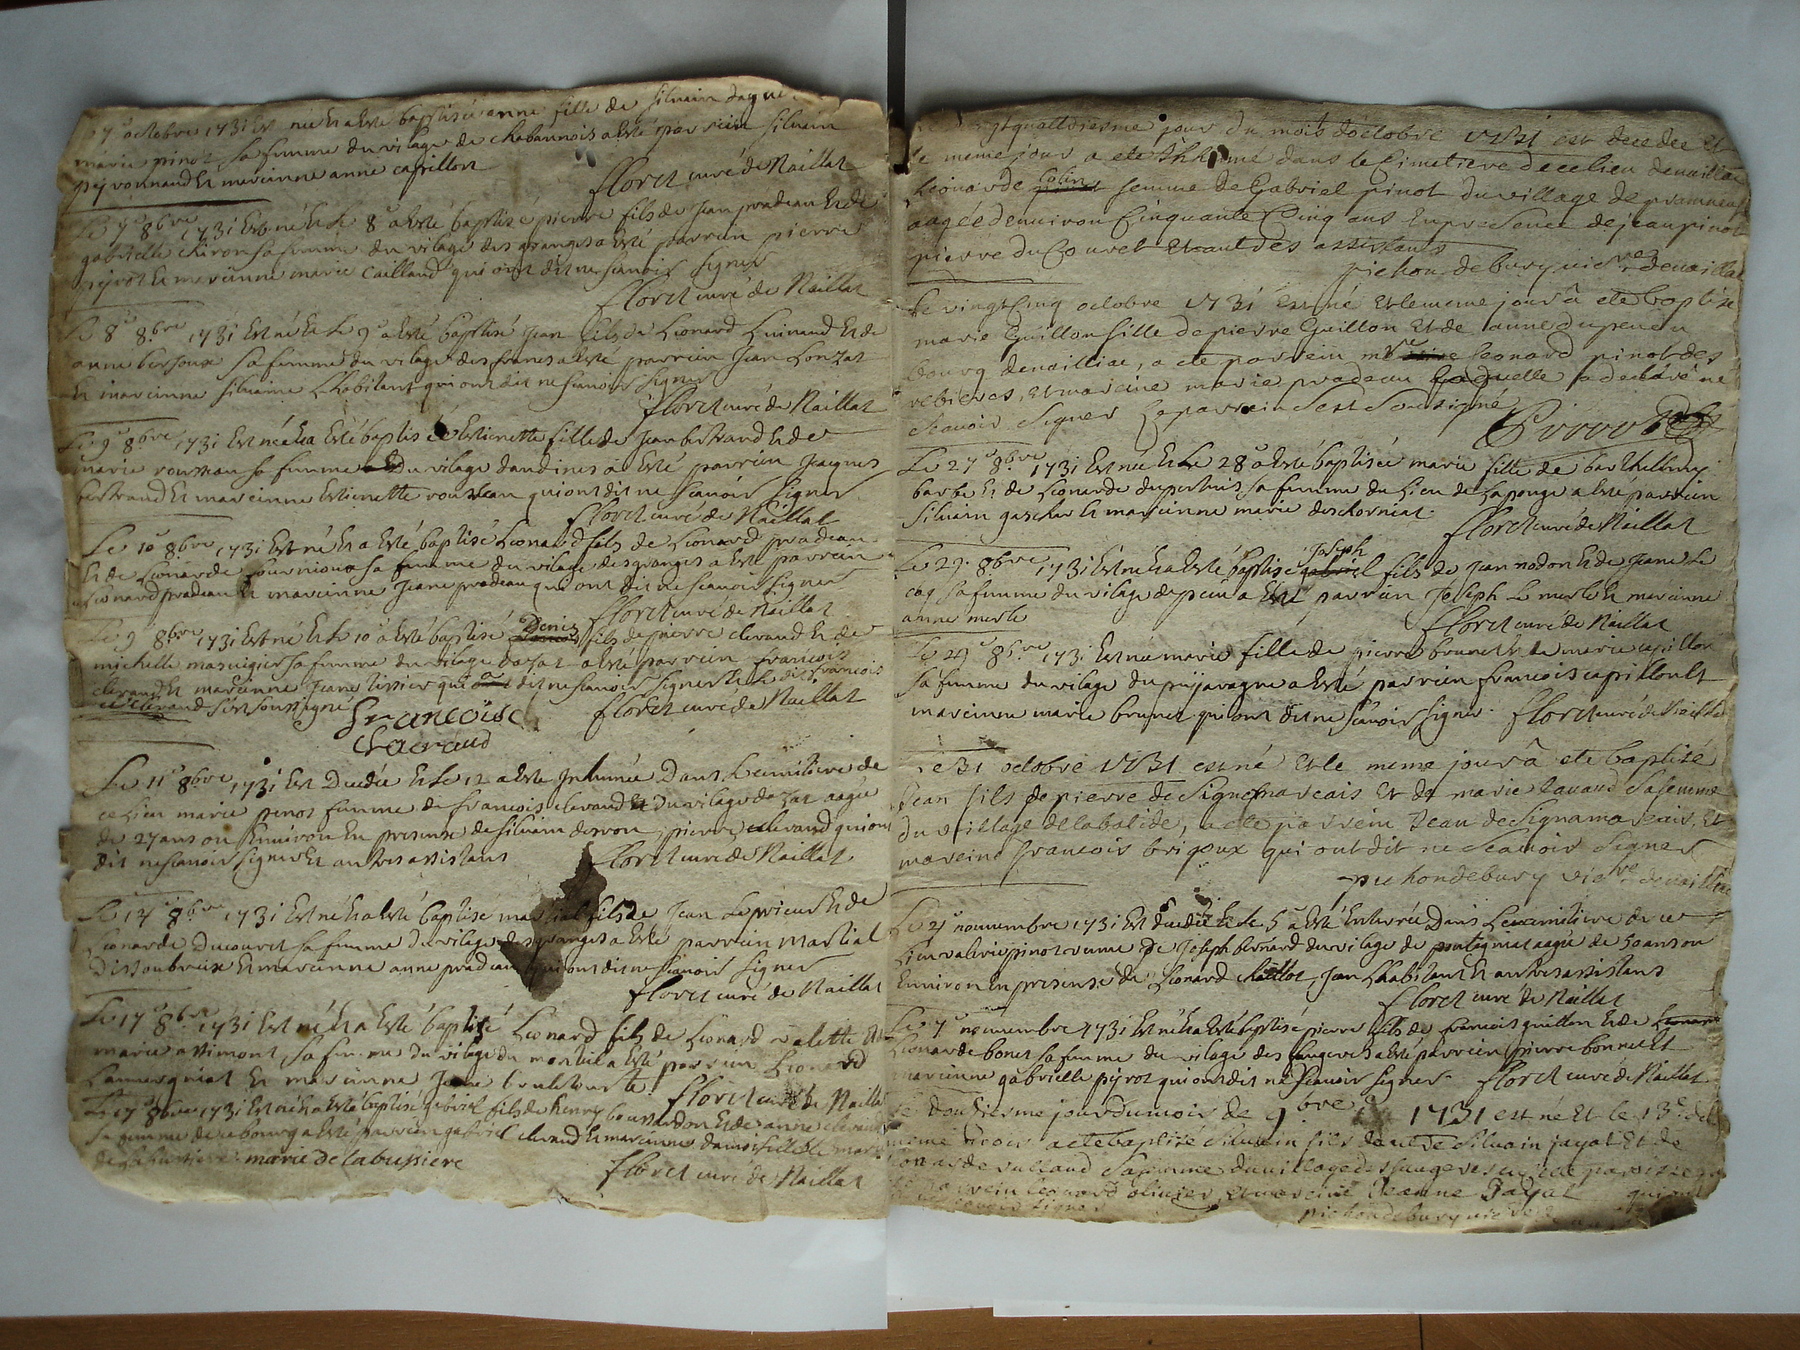 7e octobre 1731 est née et a esté baptisée anne fille de silvain
marie pinot sa femme du vilage de chabannois a esté parrein silvain
peyronnaud et marreinne anne capillon
floret curé de Naillat
Le 7e 8bre 1731 est né et le 8e a esté baptisé pierre fils de Jean pradeau et de
gabrielle chiron sa femme du vilage des granges a esté parrein pierre
peyrot et mareinne marie caillaud qui ont dit ne scavoir signer
floret curé de Naillat
Le 8e 8bre 1731 est né et le 9e a esté baptisé Jean fils de Leonard Guinaud et de
anne bersoux sa femme du vilage des francs a esté parrein Jean
et mareinne silvaine Lhabitant qui ont dit ne scavoir signer
floret curé de Naillat
Le 9e 8bre 1731 est née et a esté baptisée estienette fille de Jean bertrand et de
marie rousseau sa femme du vilage dandines a esté parrein Jacques
bertrand et mareinne estienette rousseau qui ont dit ne scavoir signer
floret curé de Naillat
Le 10e 8bre 1731 est né et a esté baptisé Leonard fils de Leonard pradeau
et de Leonarde fournioux sa femme du vilage des granges a esté parrein
Leonard pradeau et mareinne Jeane pradeau qui ont dit ne scavoir signer
floret curé de Naillat
Le 9 8bre 1731 est né et le 10e a esté baptisé Denis fils de pierre clerand et de
michelle masuigier sa femme du vilage dazat a esté parrein francois
clerand et mareinne Jeane tixier qui a dit ne scavoir signer et le dit francois
clerand s'est soussigné
floret curé de Naillat
francoise
Le 11e 8bre 1731 est decedée et le 12 a esté Inhumée Dans Le cimitiere de
ce lieu marie pinot femme de francois clerand du vilage dazat aagée
de 27 ans ou Environ En presense de silvain pierre clerand qui ont
dit ne scavoir signer et autres assistans
floret curé de Naillat
Le 14e 8bre 1731 est né et a esté baptisé martial fils de Jean Leprieur et de
Leonarde Ducouret sa femme du vilage des granges a esté parrein martial
et mareinne anne pradeau qui ont dit ne scavoir signer
floret curé de Naillat
Le 17e 8bre 1731 est né et a esté baptisé Leonard fils de Leonard valette et
marie assimont sa femme du vilage du monteil a esté parrein Leonard
et mareinne Jeane
floret curé de Naillat
Le 17e 8bre 1731 est né et a esté baptisé gabriel fils de henry boussardon et de anne clerand
sa femme de ce bourg a esté parrein gabriel clerand et mareinne damoiselle marie
de la bussiere marie de labussiere
floret curé de Naillat
quattriesme jour du mois d'octobre 1731 est decedée et
le meme jour a ete Inhumé dans le Cimetiere de ce lieu denaillac
leonarde Colin femme de Gabriel pinot du village de
aagée denuiron Cinquante Cinq ans en presence de jean pinot
pierre du Couret et autres assistants
pichon de bury vicre denaillac
Le vingt Cinq octobre 1731 est né et le meme jour a ete baptisé
marie Guillon fille de pierre Guillon et de anne dupeux
bourg denailliac, a ete parrein mre leonard pinot des
rebieras, et mareine marie pradeau laquelle a declaré ne
scavoir signer Le parrein s'est sousigné
Pinot
Le 27e 8bre 1731 est née et le 28e a esté baptisée marie fille de barthellemy
barbe et de Leonarde dupertuis sa femme du lieu de Laponge a esté parrein
silvain gascher et mareinne marie deschorniat
floret curé de Naillat
Le 29e 8bre 1731 est né et a esté baptisé Joseph fils de Jean nadon et de Jeane Le
coq sa femme du vilage de peu a esté parrein Joseph Le merle et mareinne
anne merle
floret curé de Naillat
Le 29e 8bre 1731 est née marie fille de pierre brunet et de marie capillon
sa femme du vilage du puijaragne a esté parrein francois capillon et
mareinne marie brunet qui ont dit ne scavoir signer floret curé de Naillat
Le 31 octobre 1731 est né et le meme jour a ete baptisé
Jean fils de pierre de signamarcais et de marie tauaud sa femme
du village de labalide, a ete parrein Jean de signamarcais, et
mareine francois brigoux qui ont dit ne scavoir signer
pichon de bury vicre denaillac
Le 4e nouembre 1731 est decedée et le 5e a esté enterrée Dans Le cimitiere de ce
Lieu valerie pinot veuue de Joseph bernard du vilage de aagée de 50 ans ou
Enuiron En presense de Leonard chattot, Jean Lhabitant et autres assistans
floret curé de Naillat
Le 7e nouembre 1731 est né et a esté baptisé pierre fils de francois guillon et de
Leonarde bonet sa femme du vilage des faugeres a esté parrein pierre bonnet et
mareinne gabrielle peyrot qui ont dit ne scavoir signer floret curé de Naillat
Le douziesme jour du mois de 9bre 1731 est né et le 13e du
meme mois a ete baptisé silvain fils de silvain jayat et de
sa femme du village des faugeres
parrein leonard olivier, et mareine Jeanne Jayat qui ont
scavoir signer pichon de bury vicre